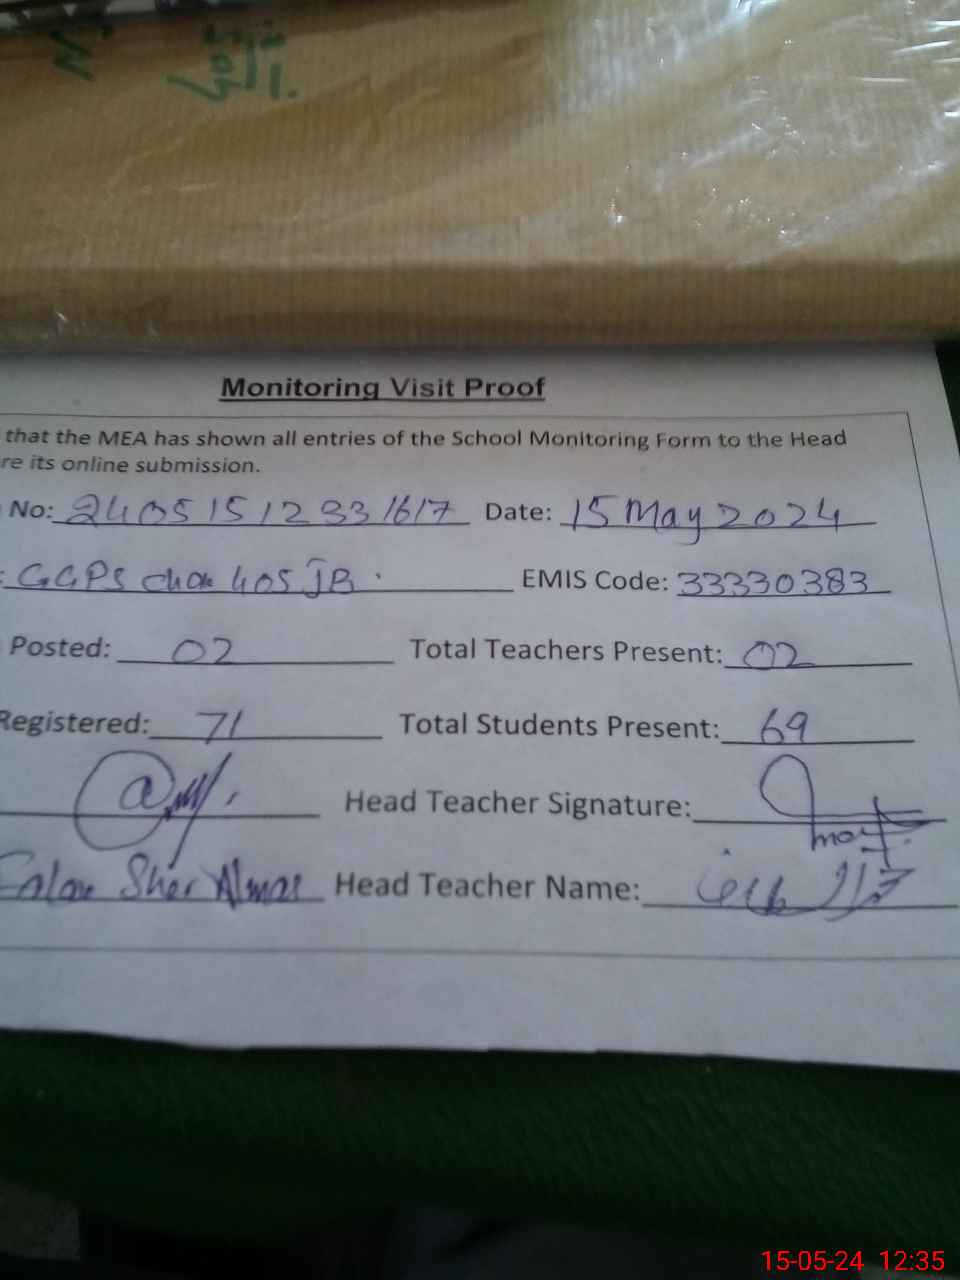 Monitoring Visit Proof
that the MEA has shown all entries of the School Monitoring Form to the Head
re its online submission.
No: 24051512331617 Date: 15 May 2024
GGPS chak 405 JB. EMIS Code: 33330383
Posted: 02 Total Teachers Present: 02
Registered: 71 Total Students Present: 69
Head Teacher Signature:
Sher Almas Head Teacher Name:
15-05-24 12:35